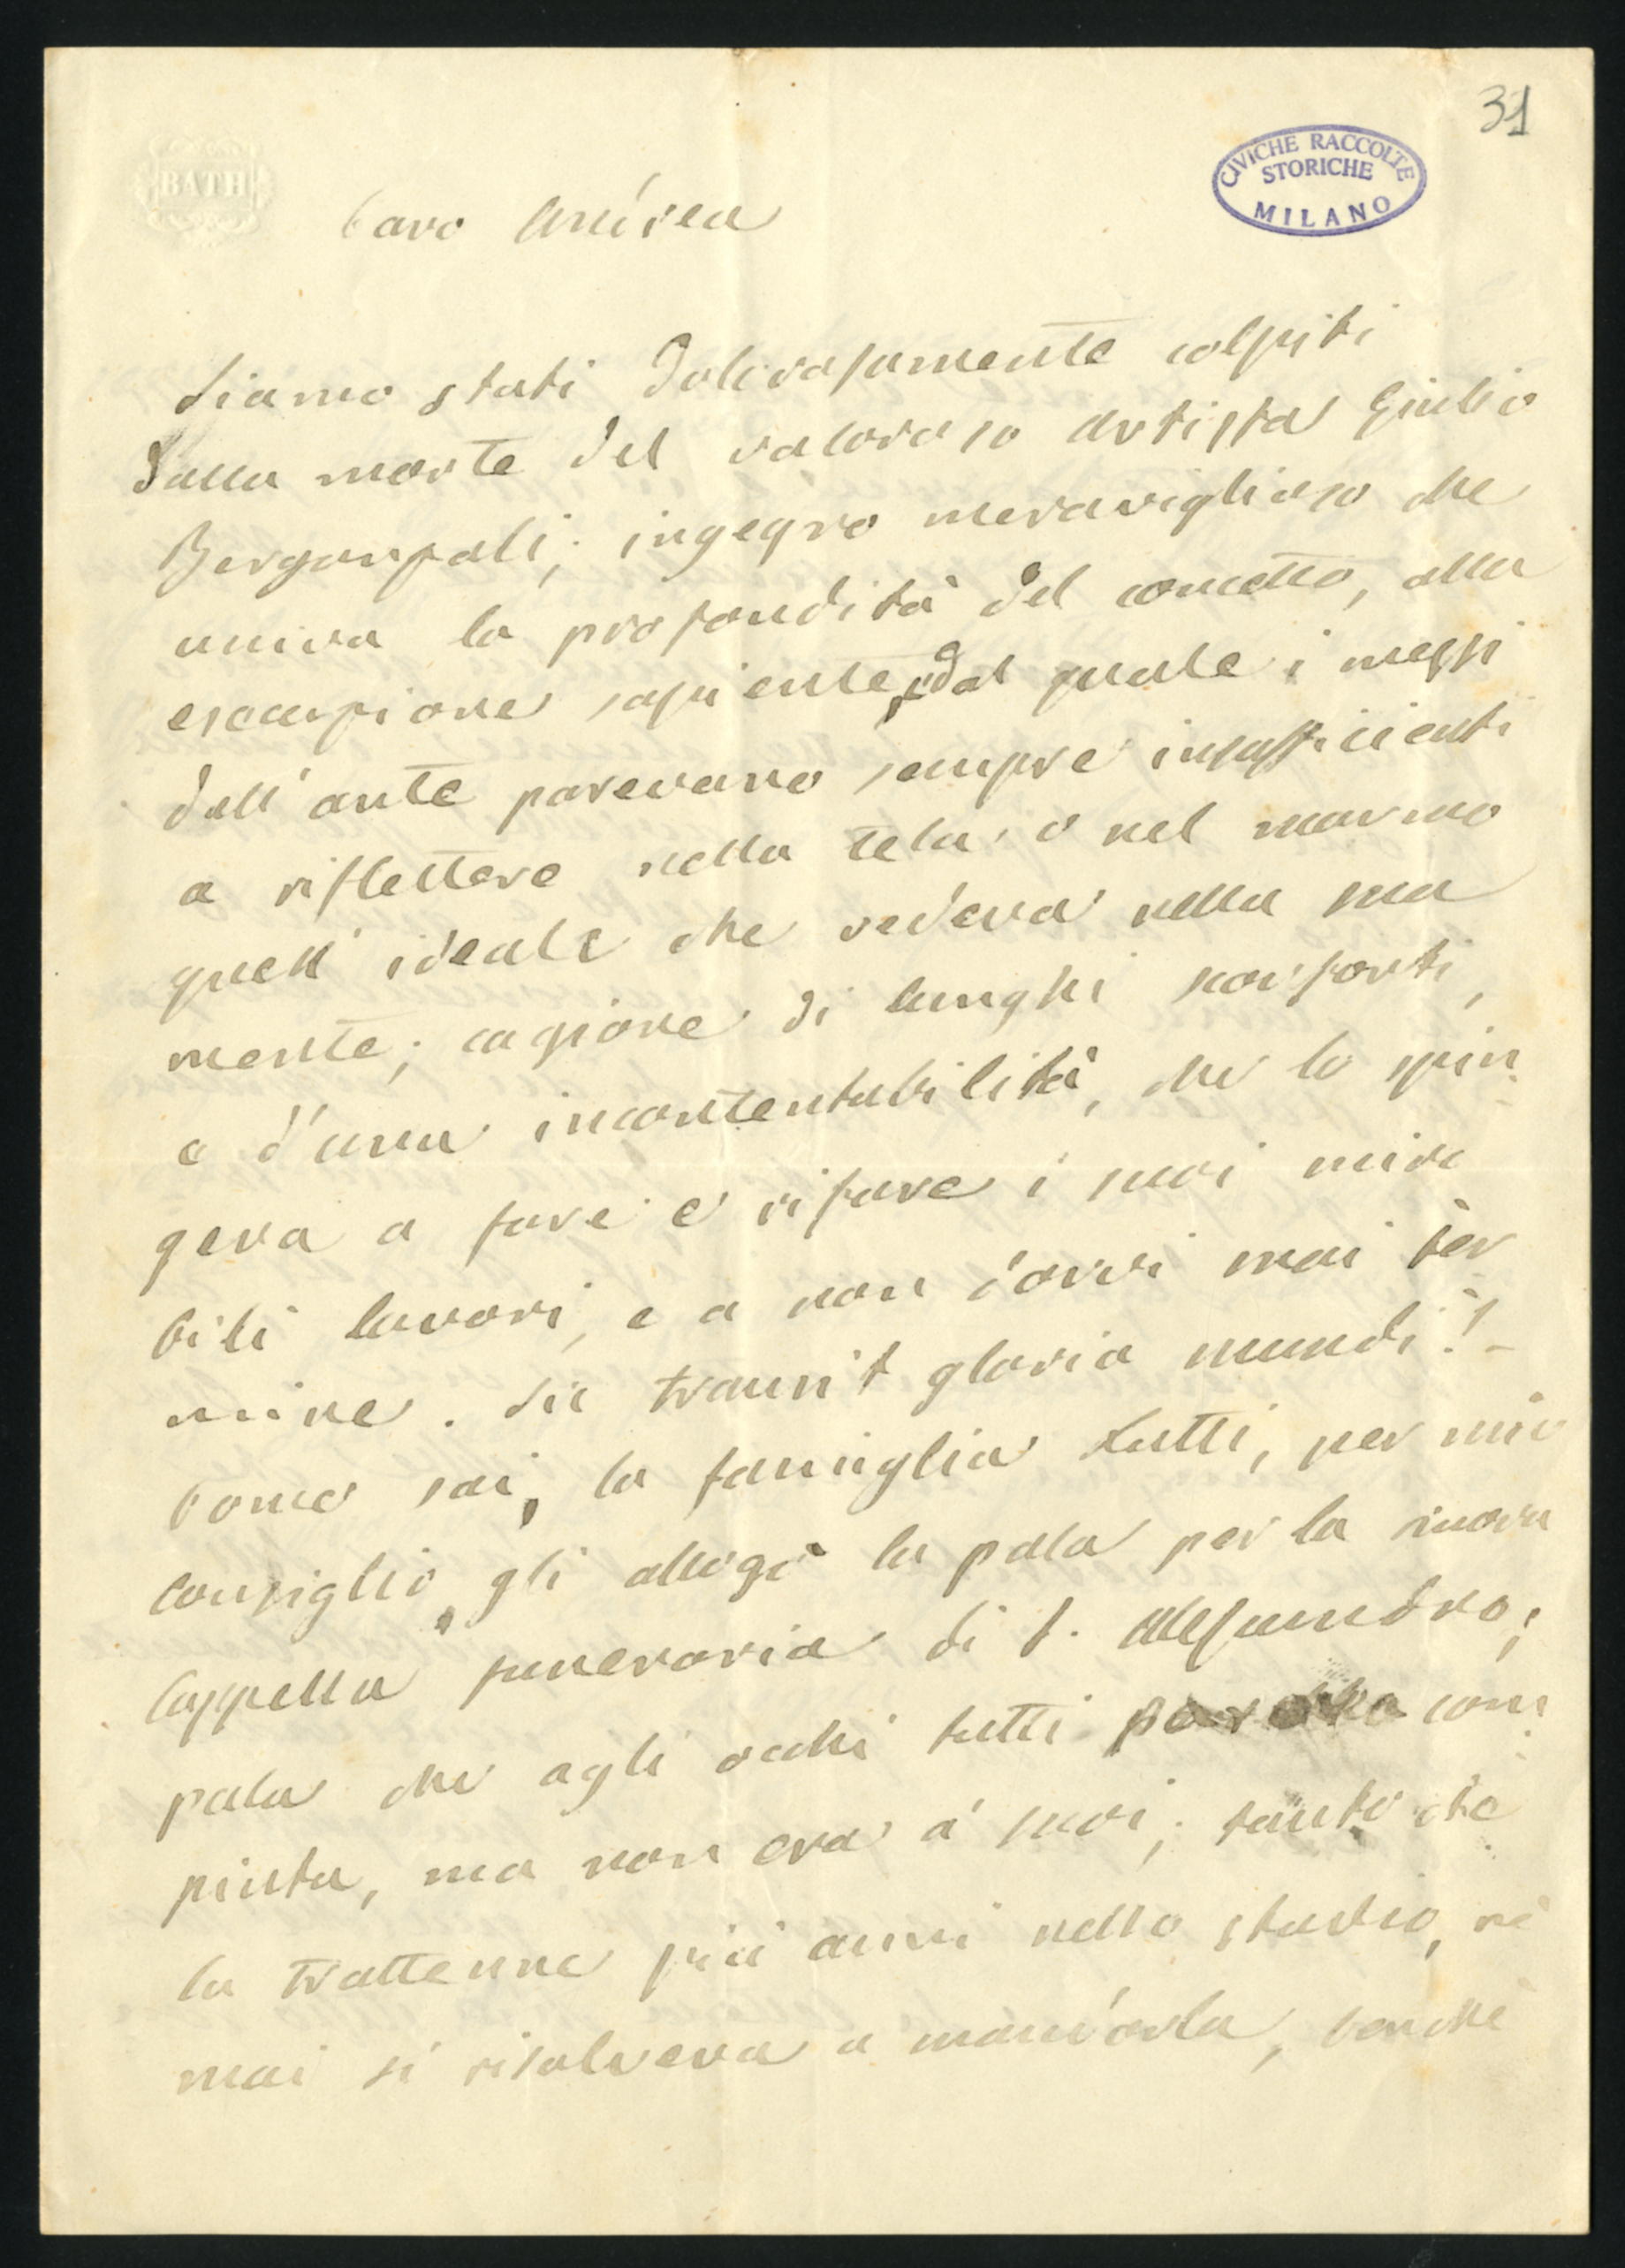 31
CIVICHE RACCOLTE
STORICHE
MILANO
BATH
Caro Andrea
Siamo stati dolorosamente colpiti
dalla morte del valoroso artista Giulio
Bergonzoli; ingegno meraviglioso che
univa la profondità del concetto, alla
esecuzione sapiente, dal quale i mezzi
dell'arte parevano sempre insufficienti
a riflettere nella tela o nel marmo
quell'ideale che vedeva nella sua
mente; cagione di lunghi sconforti,
e d'una incontentabilità, che lo spin
geva a fare e rifare i suoi mira
bili lavori, e a non darvi mai ter
mine. Sic transit gloria mundi!-
Come sai, la famiglia Lutti, per mio
consiglio, gli allogò la pala per la nuova
Cappella funeraria di S. Alessandro;
pala che agli occhi tutti com
piuta, ma non era a' suoi; tanto che
la trattenne più anni nello studio, nè
mai si risolveva a mandarla, benchè